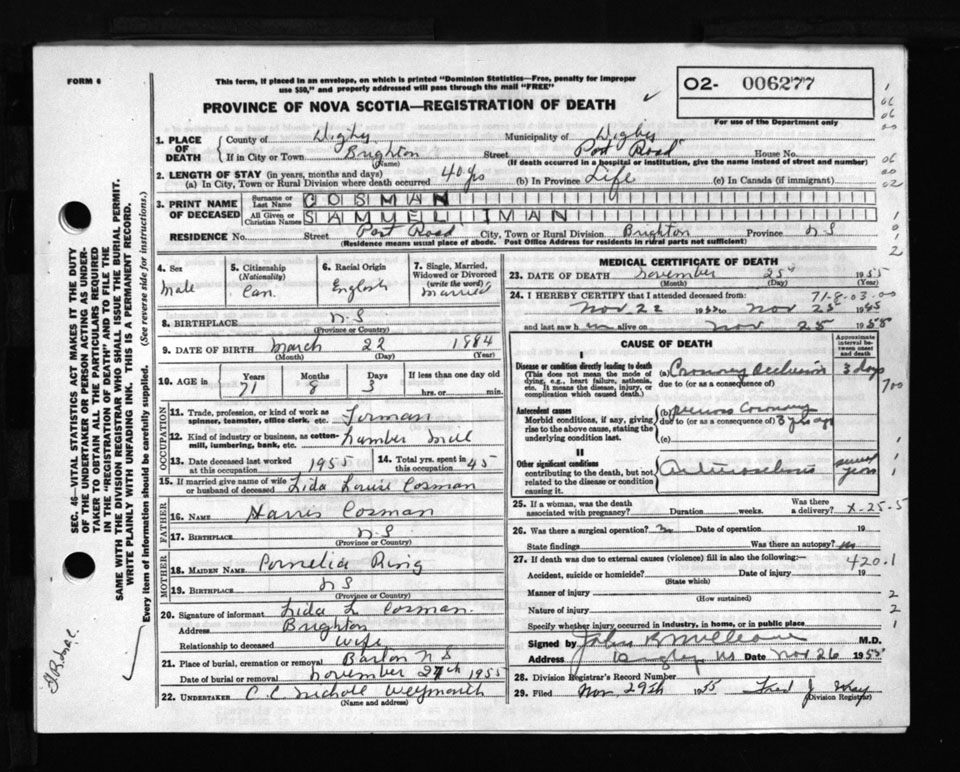 FORM 6
This form, if placed in an envelope, on which is printed "Dominion Statistics—Free, penalty for improper
use $50," and properly addressed will pass through the mail "FREE"
PROVINCE OF NOVA SCOTIA—REGISTRATION OF DEATH
O2- 006277
For use of the Department only
1. PLACE OF DEATH
County of Digby Municipality of Digby
If in City or Town Brighton Street Post Road House No.
(Name) (If death occurred in a hospital or institution, give the name instead of street and number)
2. LENGTH OF STAY (in years, months and days)
(a) In City, Town or Rural Division where death occurred 40 yrs (b) In Province Life (c) In Canada (if immigrant)
3. PRINT NAME OF DECEASED
Surname or Last Name COSMAN
All Given or Christian Names SAMUEL IMAN
RESIDENCE No. Street Post Road City, Town or Rural Division Brighton Province N S
(Residence means usual place of abode. Post Office Address for residents in rural parts not sufficient)
4. Sex Male
5. Citizenship (Nationality) Can.
6. Racial Origin English
7. Single, Married, Widowed or Divorced (write the word) Married
8. BIRTHPLACE N.S
(Province or Country)
9. DATE OF BIRTH March 22 1884
(Month) (Day) (Year)
10. AGE in Years 71 Months 8 Days 3 If less than one day
hrs. or min.
OCCUPATION
11. Trade, profession, or kind of work as spinner, teamster, office clerk, etc. Forman
12. Kind of industry or business, as cotton-mill, lumbering, bank, etc. Lumber Mill
13. Date deceased last worked at this occupation 1955
14. Total yrs. spent in this occupation 45
15. If married give name of wife or husband of deceased Lida Louise Cosman
FATHER
16. NAME Harris Cosman
17. BIRTHPLACE N.S
(Province or Country)
MOTHER
18. MAIDEN NAME Cornelia Ring
19. BIRTHPLACE N S
(Province or Country)
20. Signature of informant Lida L Cosman.
Address Brighton
Relationship to deceased Wife
21. Place of burial, cremation or removal Barton N S
Date of burial or removal November 27th 1955
22. UNDERTAKER C. C. Nicholl Weymouth
(Name and address)
MEDICAL CERTIFICATE OF DEATH
23. DATE OF DEATH November 25th 1955
(Month) (Day) (Year)
71-8-03.00
24. I HEREBY CERTIFY that I attended deceased from:
Nov 22 1955 to Nov 25 1955
and last saw him alive on Nov 25 1955
CAUSE OF DEATH
Approximate interval between onset and death
I
Disease or condition directly leading to death
(This does not mean the mode of dying, e.g., heart failure, asthenia, etc. It means the disease, injury, or complication which caused death.)
(a) Coronary Occlusion 3 days
due to (or as a consequence of)
700
Antecedent causes
Morbid conditions, if any, giving rise to the above cause, stating the underlying condition last.
(b) Previous Coronary 3 yrs ago
due to (or as a consequence of)
(c)
II
Other significant conditions
contributing to the death, but not related to the disease or condition causing it.
Arteriosclerosis several years
25. If a woman, was the death associated with pregnancy? Duration weeks. Was there a delivery? X-25-5
26. Was there a surgical operation? no Date of operation 19
State findings Was there an autopsy?
27. If death was due to external causes (violence) fill in also the following:—
420.1
Accident, suicide or homicide? Date of injury 19
(State which)
Manner of injury
(How sustained)
Nature of injury
Specify whether injury occurred in industry, in home, or in public place
Signed by M.D.
Address Digby NS Date Nov 26 1955
28. Division Registrar's Record Number
29. Filed Nov. 29th 1955 Fred J
Division Registrar
SEC. 46—VITAL STATISTICS ACT MAKES IT THE DUTY
OF THE UNDERTAKER OR PERSON ACTING AS UNDER-
TAKER TO OBTAIN ALL THE PARTICULARS REQUIRED
IN THE "REGISTRATION OF DEATH" AND TO FILE THE
SAME WITH THE DIVISION REGISTRAR WHO SHALL ISSUE THE BURIAL PERMIT.
WRITE PLAINLY WITH UNFADING INK. THIS IS A PERMANENT RECORD.
Every item of Information should be carefully supplied. (See reverse side for instructions.)